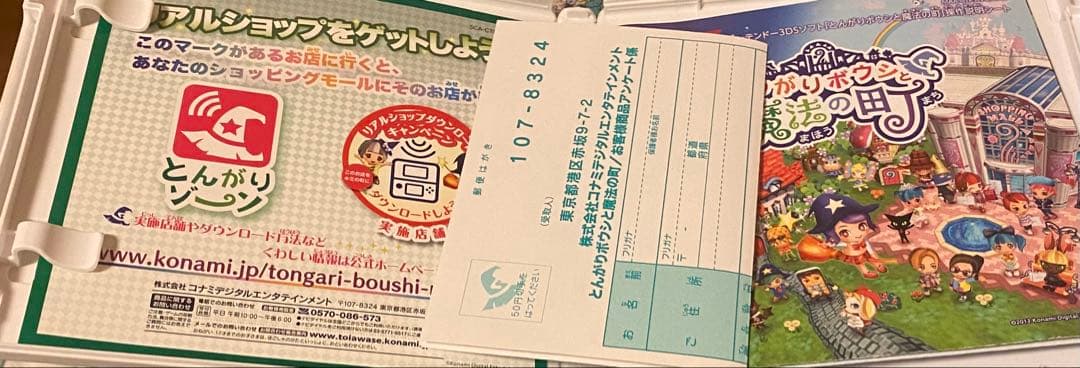 リアルショップをゲットしよう
このマークがあるお店に行くと、
あなたのショッピングモールにそのお店が
とんがり
ゾーン
リアルショップダウンロード
キャンペーン
ダウンロードしよう
実施店舗
実施店舗やダウンロード方法など
くわしい情報は公式ホームペー
www.konami.jp/tongari-boushi-
株式会社 コナミデジタルエンタテインメント 〒107-8324 東京都港区赤坂
商品に関する
お問い合わせ
電話でのお問い合わせ
0570-086-573
平日 午前10:00～午後6:00
メールでのお問い合わせ
www.toiawase.konami.
郵便はがき
107-8324
(受取人)
東京都港区赤坂9-7-2
株式会社コナミデジタルエンタテインメント
とんがりボウシと魔法の町/お客様商品アンケート係
50円切手を
はってください
保護者様お名前
フリガナ
お名前
都道
府県
フリガナ
〒 -
ご住所
ンテンドー3DSソフト「とんがりボウシと魔法の町」操作説明シート
んがりボウシと
魔法の町
まほう
まち
SHOPPING
©2013 Konami Digital